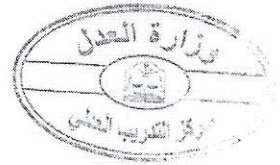 وزارة العدل
مركز التدريب العدلي